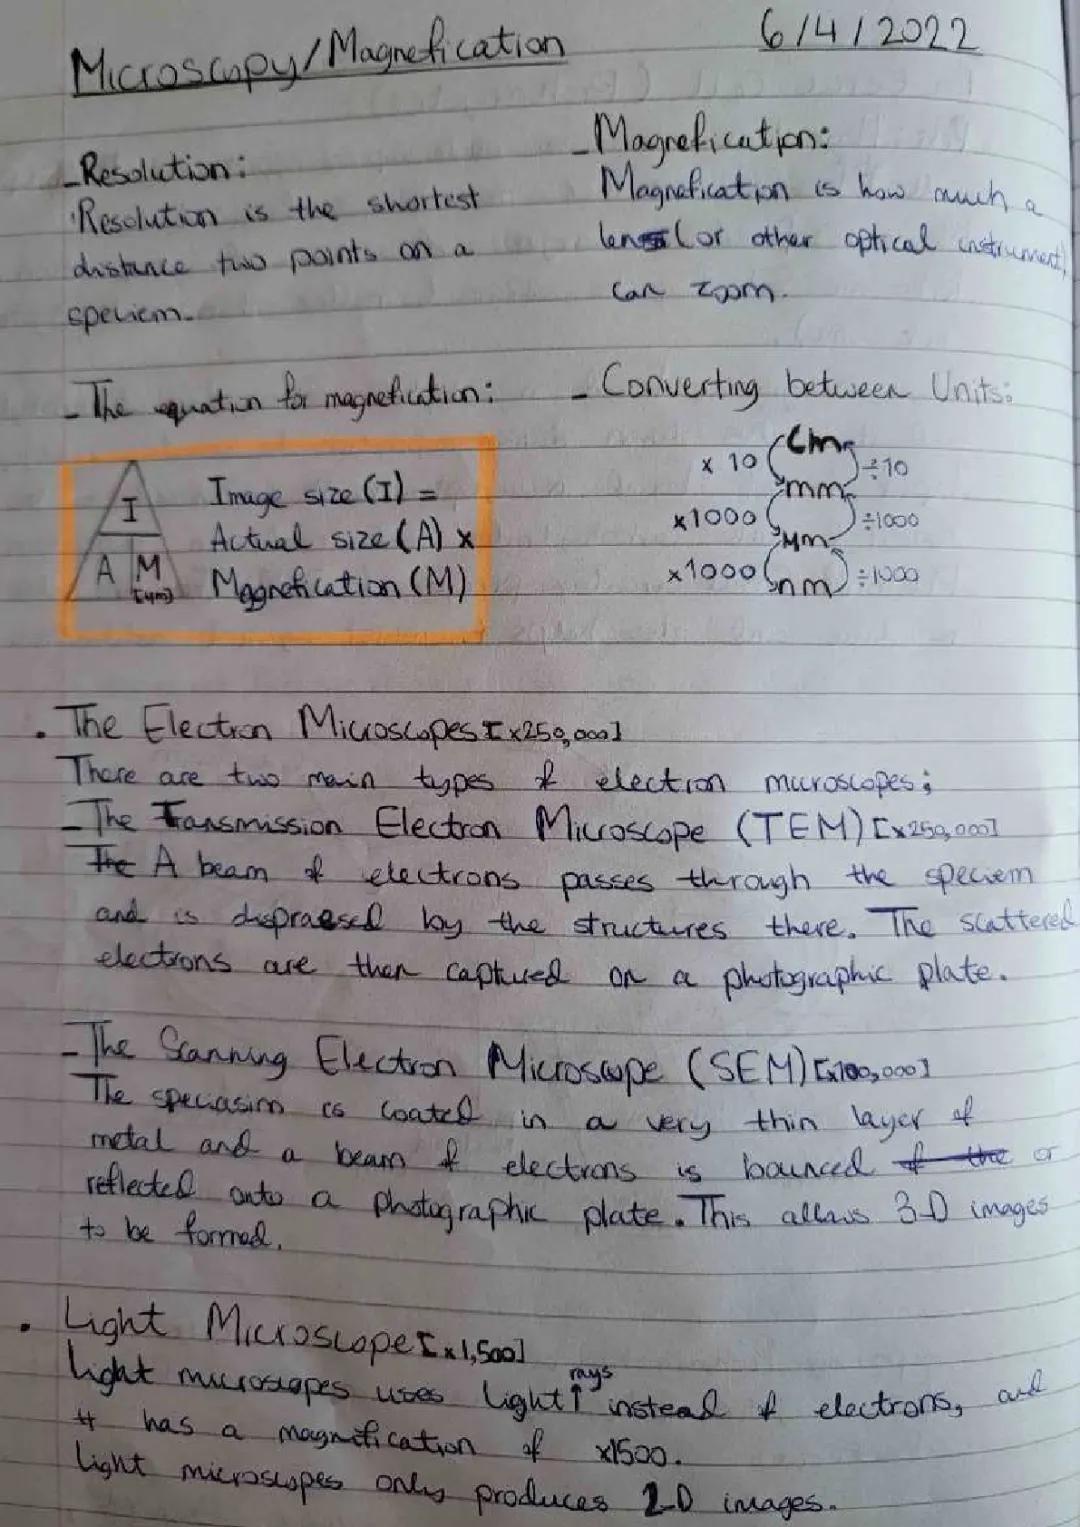 Microscopy/Magnefication
6/4/2022
- Resolution:
Resolution is the shortest
distance two points on a
speciem.
- Magnefication:
Magnefication is how much a
lens (or other optical instrument)
can zoom.
- The equation for magnefication:
I
A M
Image size (I) =
Actual size (A) x
Magnefication (M)
- Converting between Units:
cm
x 10 ÷10
mm
x1000 ÷1000
μm
x1000 ÷1000
nm
• The Electron Microscopes [x250,000]
There are two main types of electron microscopes;
- The Transmission Electron Microscope (TEM) [x250,000]
The A beam of electrons passes through the speciem
and is dispraesed by the structures there. The scattered
electrons are then captured on a photographic plate.
- The Scanning Electron Microscope (SEM) [x100,000]
The speciasim is coated in a very thin layer of
metal and a beam of electrons is bounced of the or
reflected onto a photographic plate. This allows 3-D images
to be formed.
• Light Microscope [x1,500]
Light microscopes uses light rays instead of electrons, and
it has a magnification of x1500.
Light microscopes only produces 2-D images.